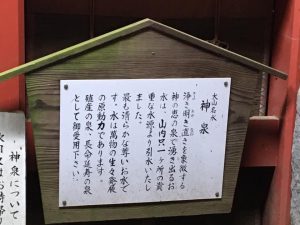 大山名水
神泉
浄き明き直きさを象徴する
神の恵の泉で湧き出るお
水は、山内只一ヶ所の貴
重な水源より引水いたし
ました。
最も清らかな尊いお水で
す。水は萬物の生々発展
の原動力であります。
殖産の泉、長命延寿の泉
として御愛用下さい。
神泉について